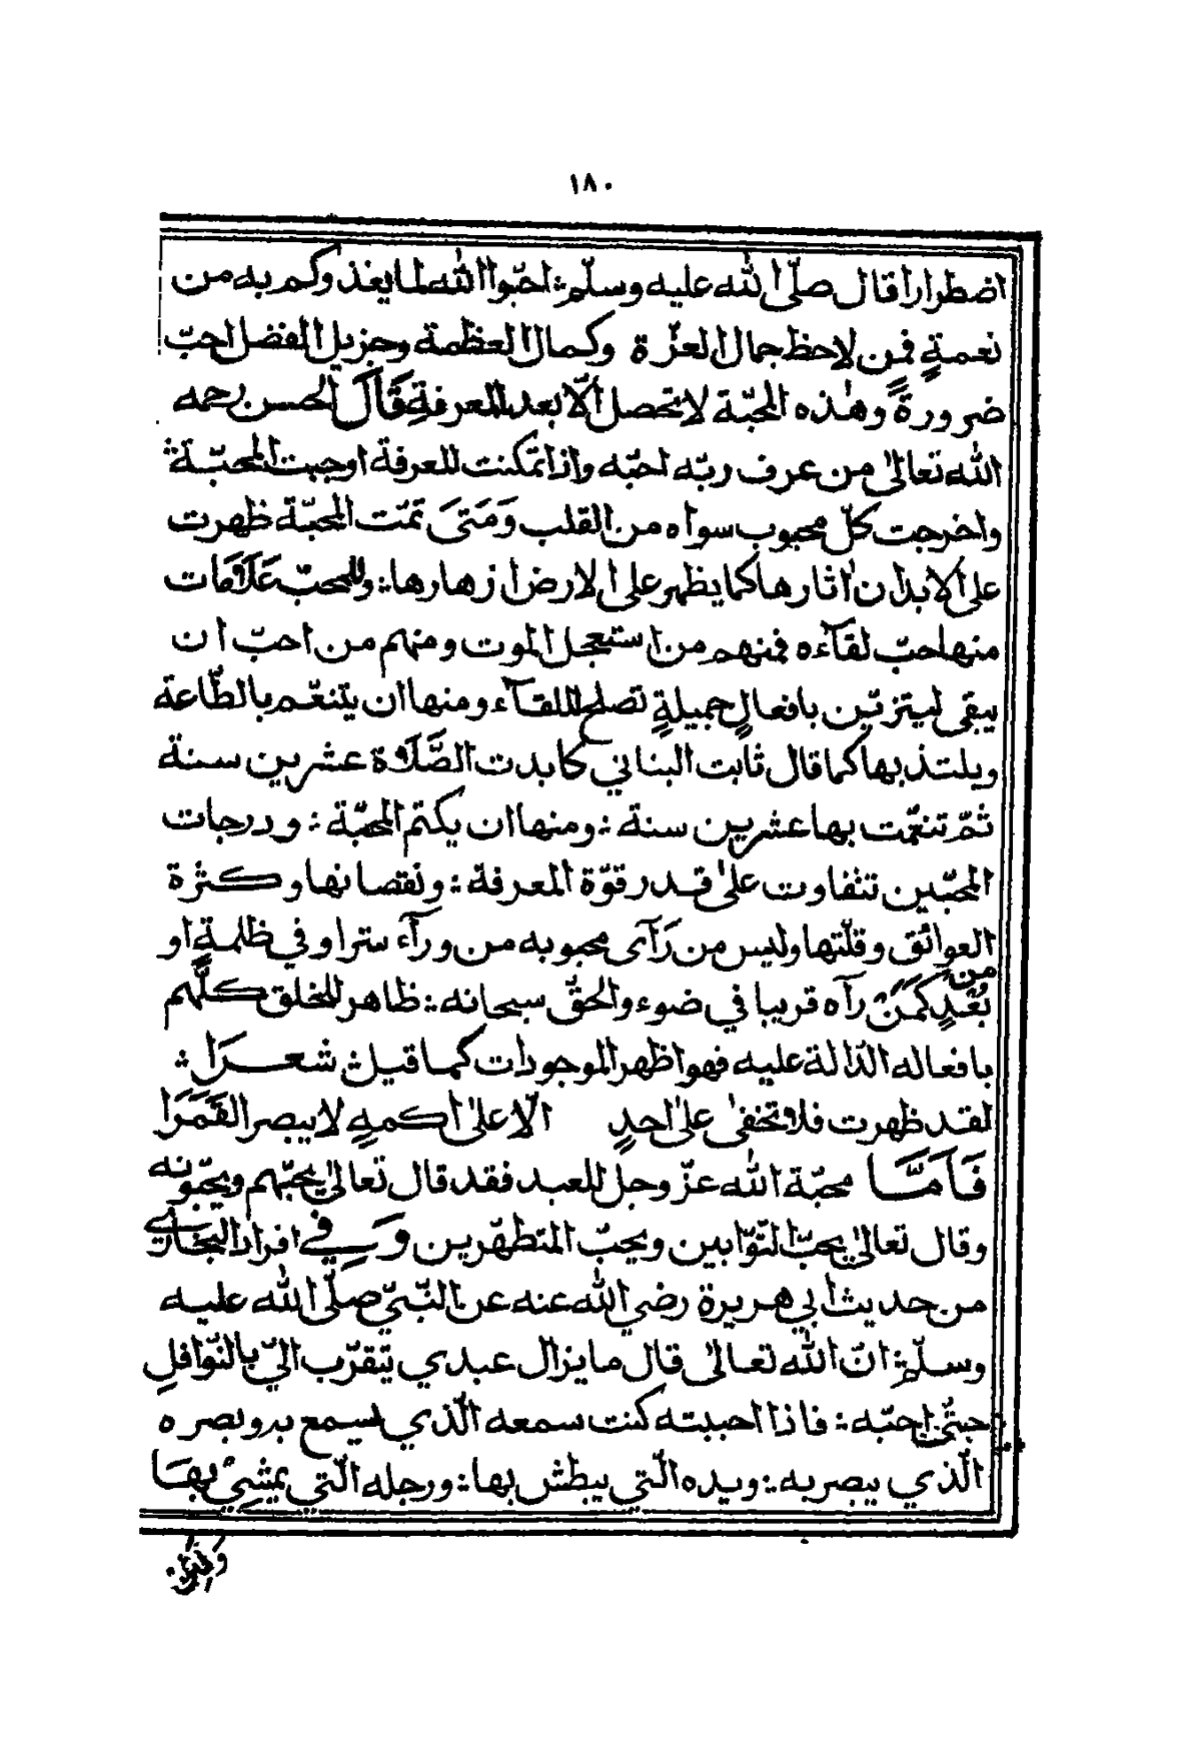 ١٨٠
اضطرارا قال صلّى الله عليه وسلّم: احبّوا الله لما يغذوكم به من
نعمةٍ فمن لاحظ جمال العزّة وكمال العظمة وجزيل الفضل احبّ
ضرورةً وهذه المحبّة لا تحصل الّا بعد المعرفةِ قَالَ الحسن رحمه
الله تعالى من عرف ربّه احبّه واذا تمكنت المعرفة اوجبت المحبّة:
واخرجت كلّ محبوب سواه من القلب وَمَتىَ تمّت المحبّة ظهرت
على الابدان اثارها كما يظهر على الارض ازهارها: وللمحبّ عَلَامَات
منها حبّ لقآءه فمنهم من استعجل الموت ومنهم من احبّ ان
يبقى ليتزيّن بافعالٍ جميلةٍ تصلح للقآء ومنها ان يتنعّم بالطّاعة
ويلتذ بها كما قال ثابت البناني كابدت الصَّلَاة عشرين سنة
ثمّ تنعّمت بها عشرين سنة: ومنها ان يكتم المحبّة: ودرجات
المحبّين تتفاوت على قدر قوّة المعرفة: ونقصانها وكثرة
العوائق وقلّتها وليس من رَآى محبوبه من ورآء ستر او في ظلمةٍ او
من بُعْدٍ كَمَنْ رآه قريبا في ضوء والحقّ سبحانه: ظاهر للخلق كلّهم
بافعاله الدّالة عليه فهو اظهر الموجودات كما قيل: شعـرَا:
لقد ظهرت فلا تخفى على احدٍ الّا على اكمهٍ لا يبصر القَمَرَا
فَأَمَّا محبّة الله عزّ وجلّ للعبد فقد قال تعالى يحبّهم ويحبّونه
وقال تعالى يحبّ التّوّابين ويحبّ المتطهّرين وَفي افراد البخاري
من حديث ابي هريرة رضي الله عنه عن النّبيّ صلّى الله عليه
وسلّم: انّ الله تعالى قال ما يزال عبدي يتقرّب اليّ بالنّوافلِ
حتّى احبّه: فاذا احببته كنت سمعه الّذي يسمع به وبصره
الّذي يبصر به: ويده الّتي يبطش بها: ورجله الّتي يمشي بهَا